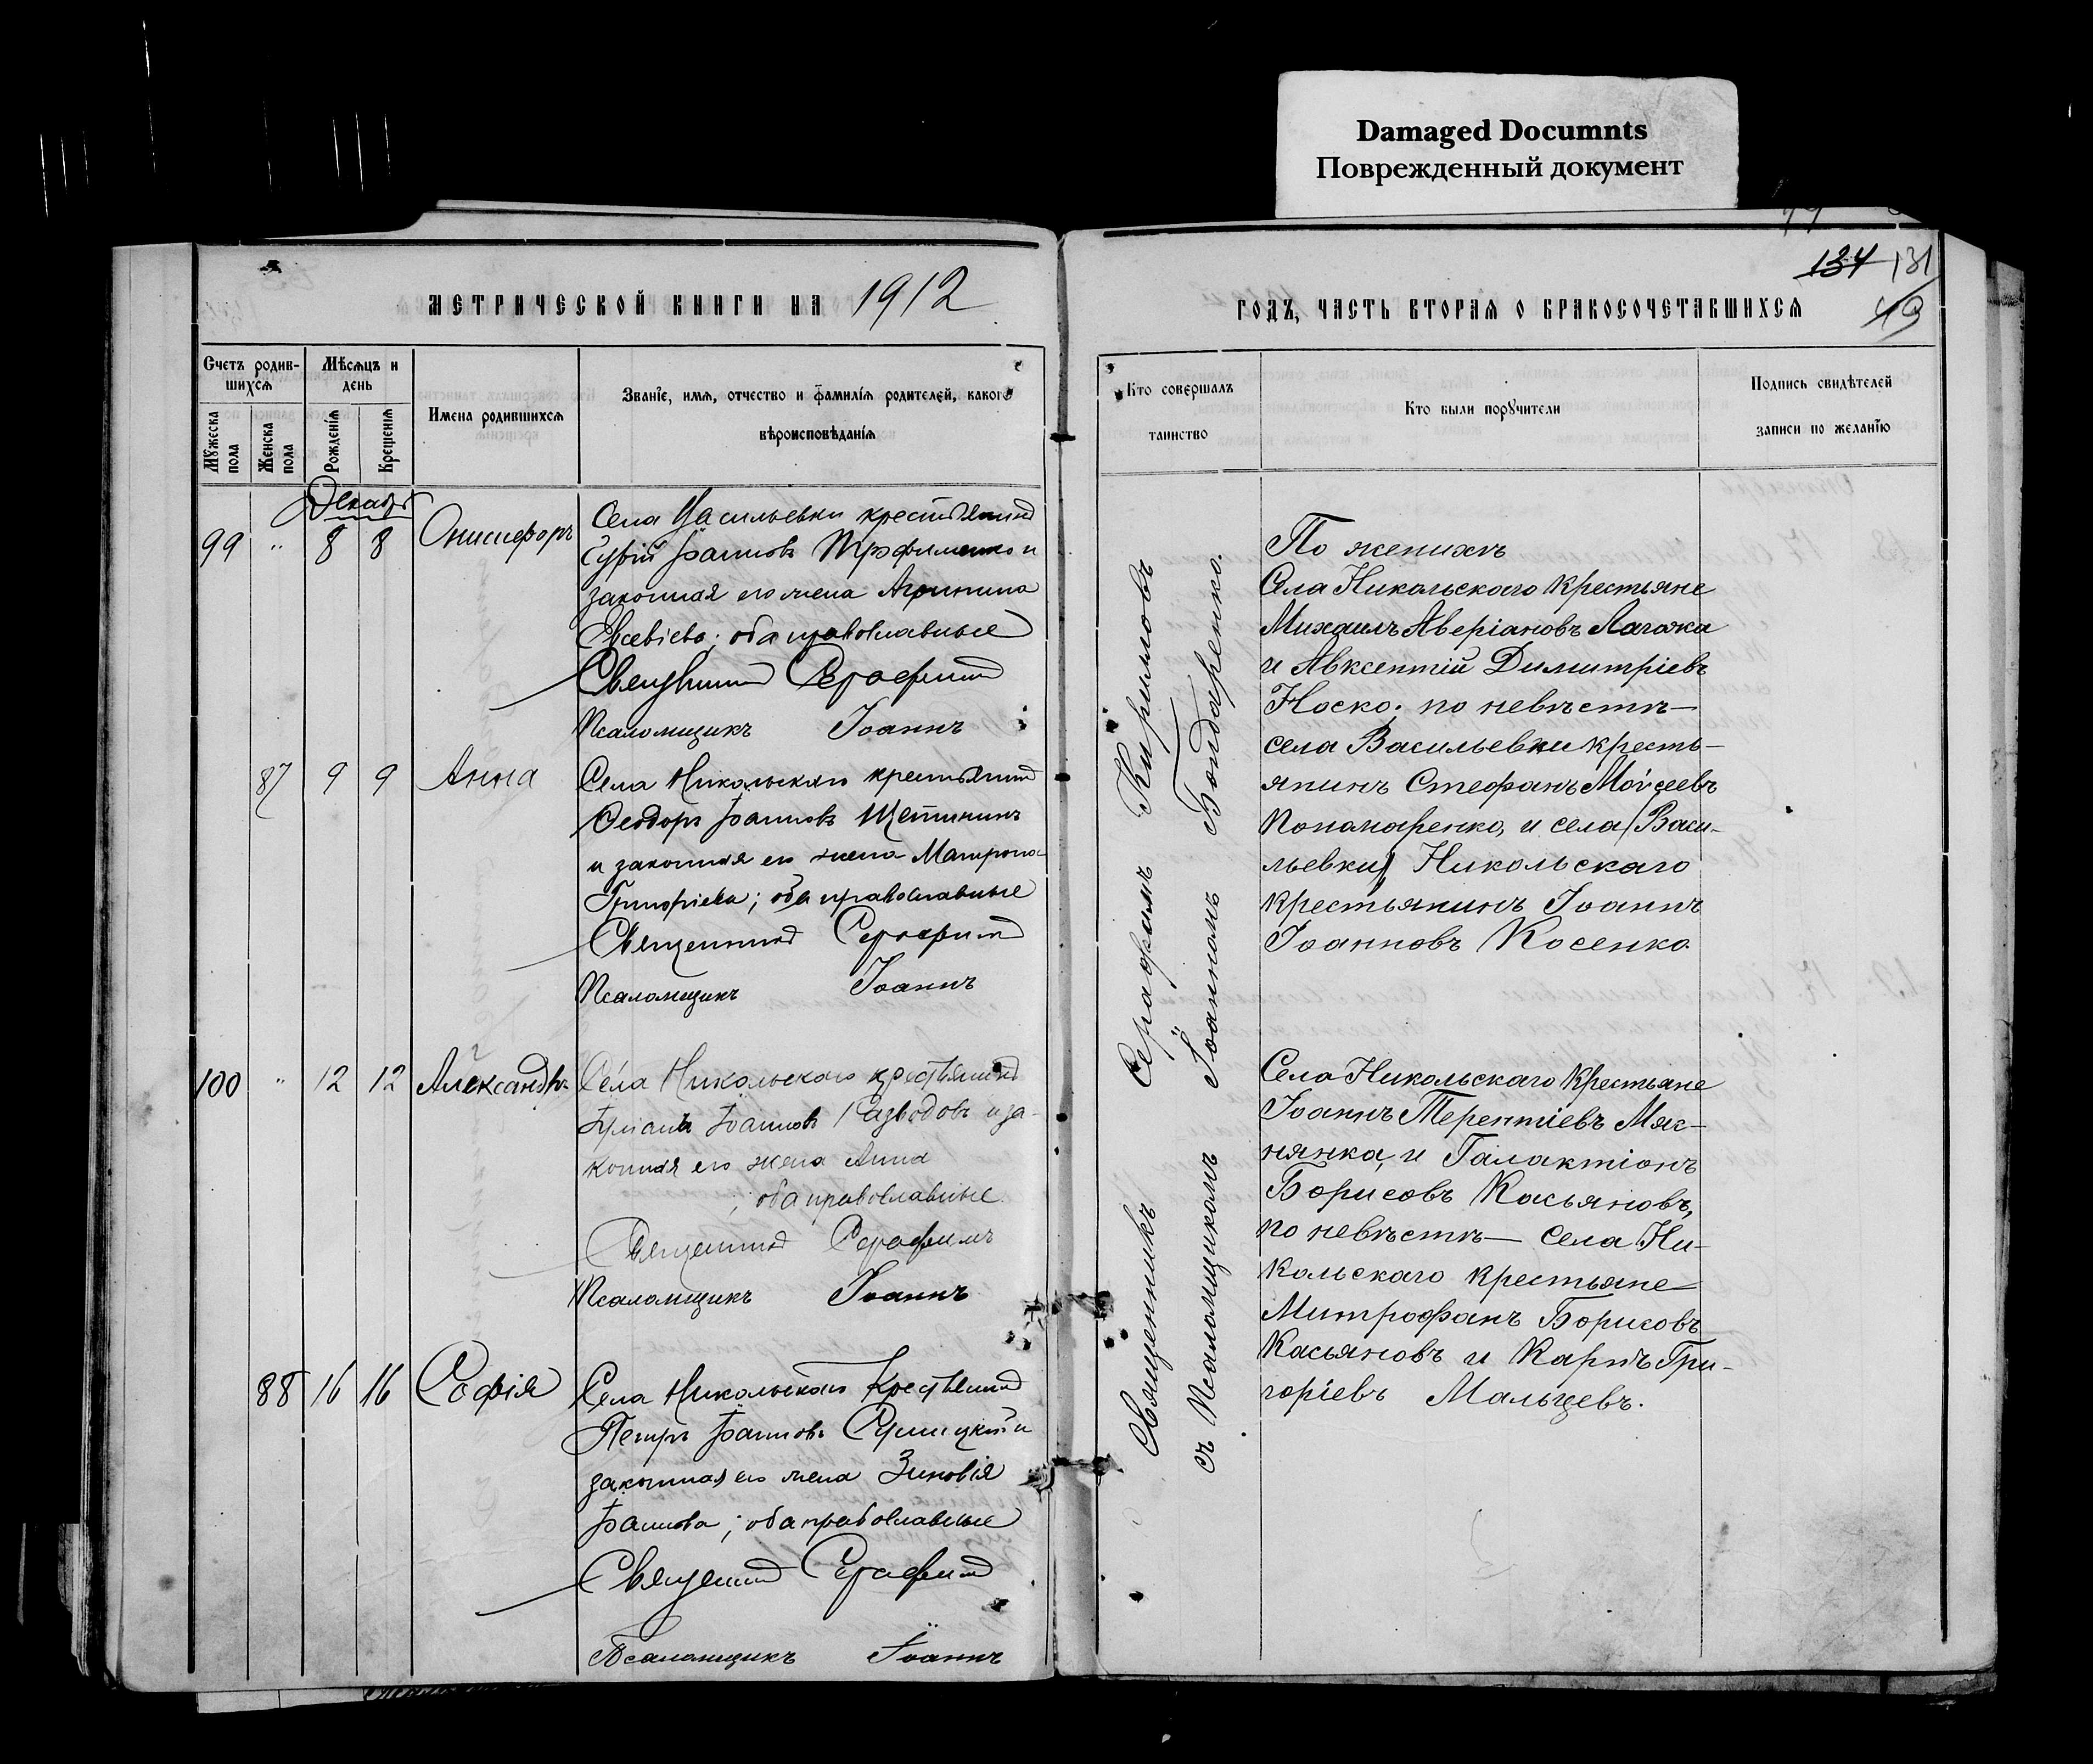 Damaged Documnts
Поврежденный документ
МЕТРИЧЕСКОЙ КНИГИ НА 1912
Счетъ родив-
шихся
Мѣсяцъ и
день
Мужеска
пола
Женска
пола
Рожденія
Крещенія
Имена родившихся
Званіе, имя, отчество и фамилія родителей, какого
вѣроисповѣданія
Декабрь
99 " 8 8 Онисифоръ
Села Васильевки крестьянинъ
Гурій Іоанновъ Трофименко и
законная его жена Агриппина
Евсевіева; оба православные
Священникъ Серафимъ
Псаломщикъ Іоаннъ
87 9 9 Анна
Села Никольскаго крестьянинъ
Ѳеодоръ Іоанновъ Щетининъ
и законная его жена Матрона
Григоріева; оба православные
Священникъ Серафимъ
Псаломщикъ Іоаннъ
100 " 12 12 Александръ
Села Никольскаго крестьянинъ
Іоанновъ Разводовъ и за-
конная его жена Анна
; оба православные
Священникъ Серафимъ
Псаломщикъ Іоаннъ
88 16 16 Софія
Села Никольскаго крестьянинъ
Петръ Іоанновъ и
законная его жена Зиновія
Іоаннова; оба православные
Священникъ Серафимъ
Псаломщикъ Іоаннъ
134 131
49
ГОДЪ, ЧАСТЬ ВТОРАЯ О БРАКОСОЧЕТАВШИХСЯ
Кто совершалъ
таинство
Кто были поручители
Подпись свидѣтелей
записи по желанію
Священникъ Серафимъ Кирилловъ
съ Псаломщикомъ Іоанномъ Бондаренко.
По женихѣ
Села Никольскаго крестьяне
Михаилъ Аверіановъ Лагожа
и Авксентій Димитріевъ
Носко; по невѣстѣ—
села Васильевки кресть-
янинъ Стефанъ Моѵсеевъ
Пономаренко, и села (Васи-
льевки) Никольскаго
крестьянинъ Іоаннъ
Іоанновъ Косенко
Села Никольскаго крестьяне
Іоаннъ Терентіевъ Мяк-
нянка, и Галактіонъ
Борисовъ Касьяновъ,
по невѣстѣ— села Ни-
кольскаго крестьяне
Митрофанъ Борисовъ
Касьяновъ и Карпъ Гри-
горіевъ Мальцевъ.